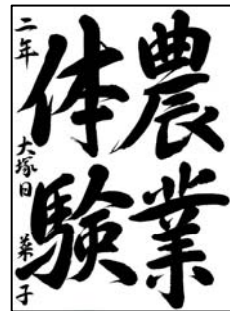 農業
体験
二年 大塚日菜子